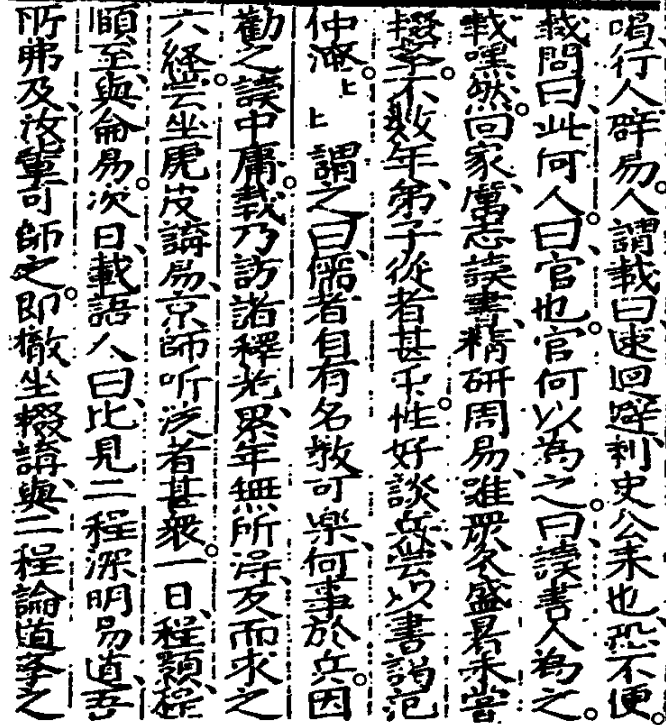 喝行人辟易。人謂載曰、速回避、刺史公来也、恐不便。
載問曰、此何人。曰、官也。官何以為之。曰、読書人為之。
載嘿然。回家、属志読書、精研周易、雖眾冬盛暑、未嘗
撥筆。不数年、弟子従者甚乎。性好談兵、嘗以書謁范
仲淹。上上謂之曰、儒者自有名教可楽、何事於兵。因
勧之読中庸。載乃訪諸釋老、累年無所得、反而求之
六経。嘗坐虎皮講易、京師听従者甚衆。一日、程顥、程
頤至、與侖易。次日、載語人曰、比見二程深明易道、吾
所弗及、汝輩可師之。即撤坐輟講、與二程論道学之